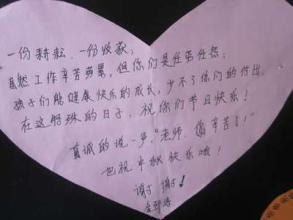 一份耕耘、一份收获;
虽然工作辛苦劳累,但你们是任劳任怨;
孩子们能健康快乐的成长,少不了你们的付出,
在这特殊的日子,祝你们节日快乐!
真诚的说一声,"老师,您辛苦了!"
也祝中秋快乐哦!
谢谢!